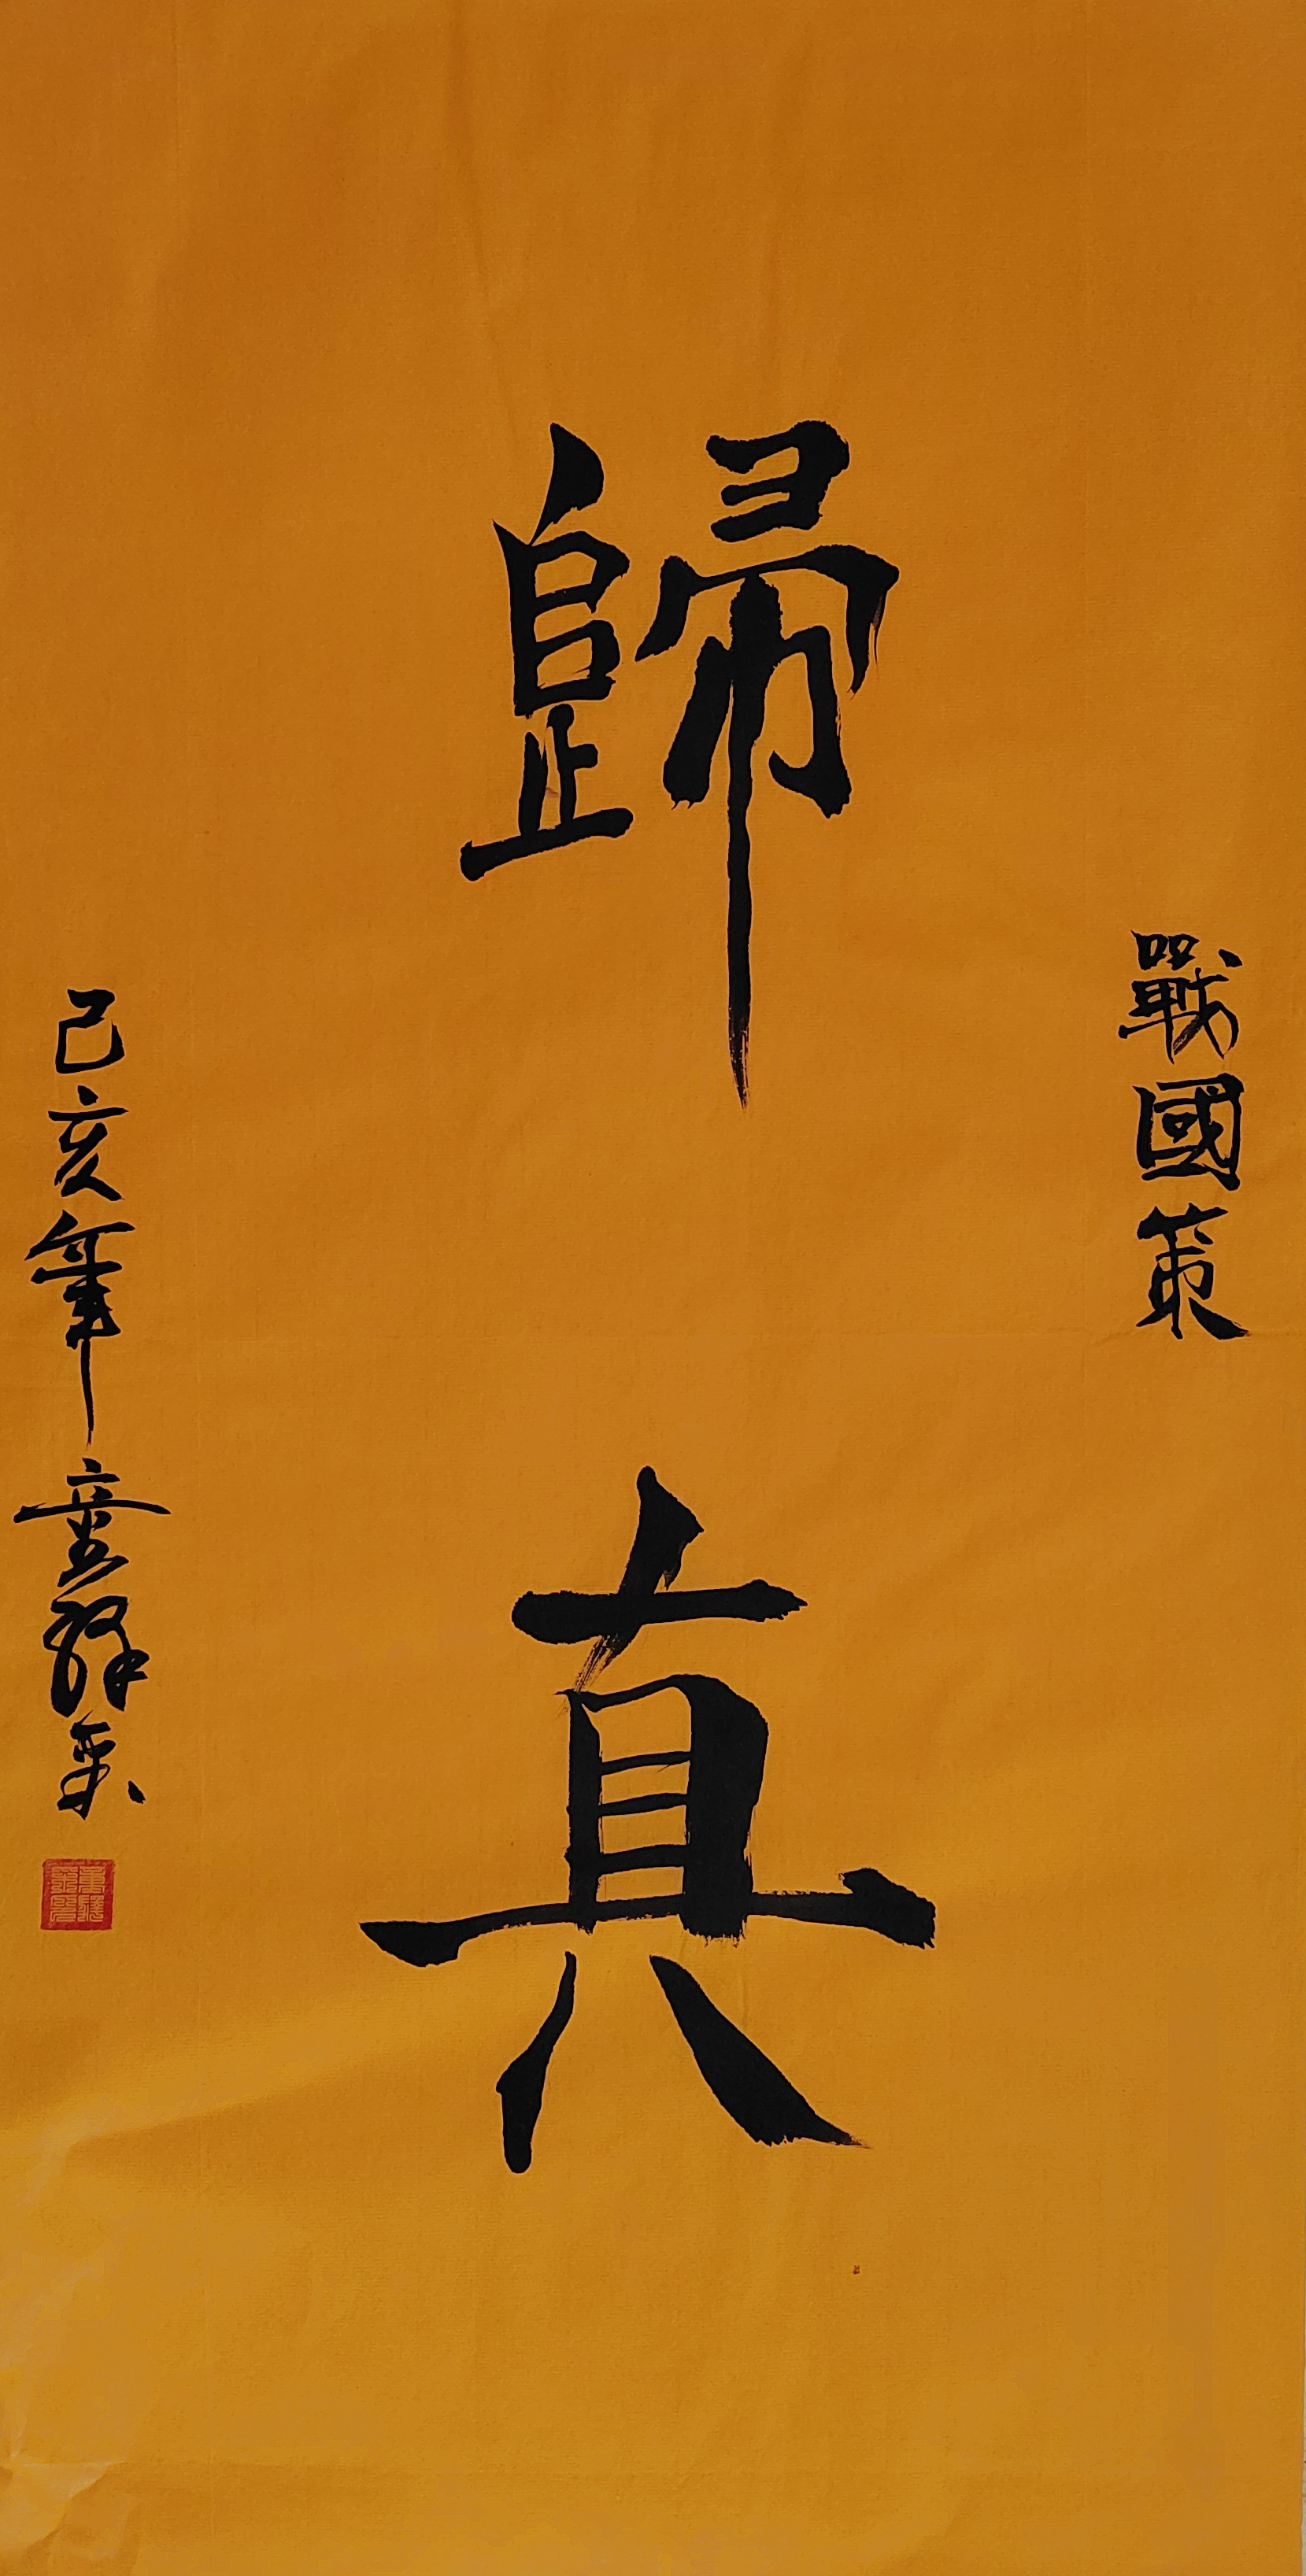 戰國策
歸真
己亥年童